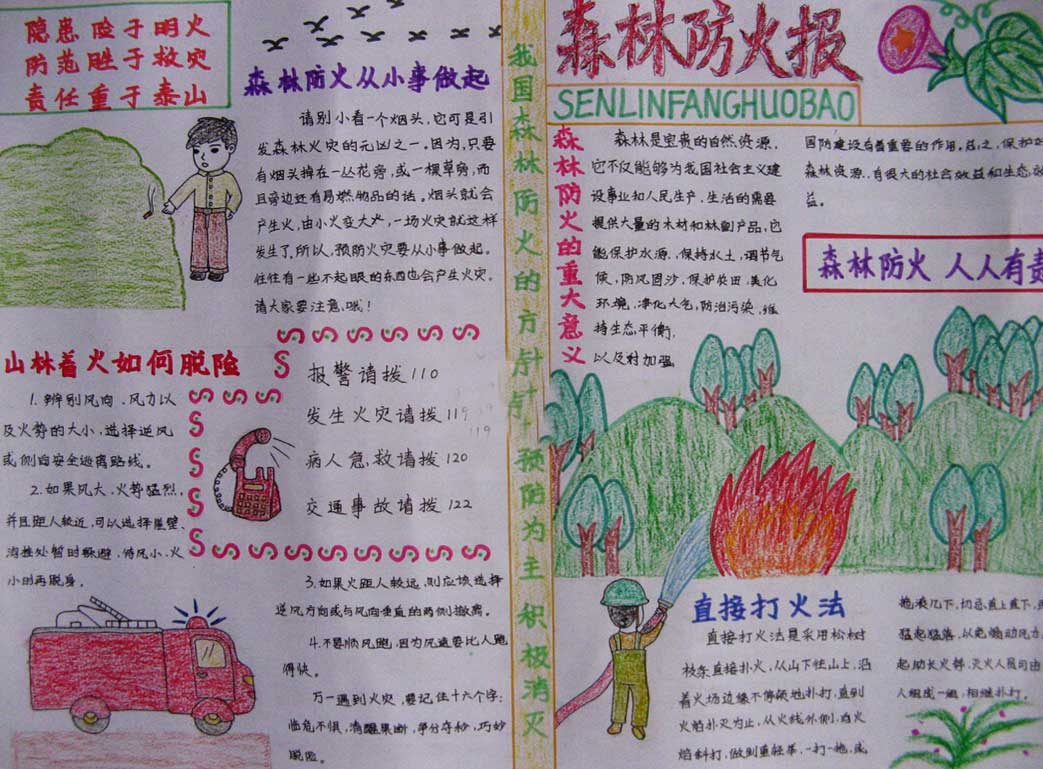 隐患险于明火
防范胜于救灾
责任重于泰山
森林防火从小事做起
请别小看一个烟头,它可是引
发森林火灾的元凶之一。因为,只要
有烟头掉在一丛花旁,或一棵草旁,而
且旁边还有易燃物品的话。烟头就会
产生火,由小火变大火,一场火灾就这样
发生了。所以,预防火灾要从小事做起。
往往有一些不起眼的东西也会产生火灾。
请大家要注意,哦!
山林着火如何脱险
1.辨别风向、风力以
及火势的大小,选择逆风
或侧向安全逃离路线。
2.如果风大、火势猛烈,
并且距人较近,可以选择崖壁、
沟洼处暂时躲避,待风小、火
小时再脱身。
报警请拨110
发生火灾请拨119
119
病人急救请拨120
交通事故请拨122
3.如果火距人较远,则应该选择
逆风方向或与风向垂直的两侧撤离。
4.不要顺风跑,因为风速要比人跑
得快。
万一遇到火灾,要记住十六个字:
临危不惧,清醒果断,争分夺秒,巧妙
脱险。
我国森林防火的方针是预防为主积极消灭
森林防火报
SENLINFANGHUOBAO
森林防火的重大意义
森林是宝贵的自然资源,
它不仅能够为我国社会主义建
设事业和人民生产、生活的需要
提供大量的木材和林副产品,它
能保护水源、保持水土,调节气
候,防风固沙,保护农田,美化
环境,净化大气,防治污染,维
持生态平衡,
以及对加强
国防建设有着重要的作用。总之,保护好
森林资源,有很大的社会效益和生态效
益。
森林防火 人人有责
直接打火法
直接打火法是采用松树
枝条直接扑火,从山下往山上,沿
着火场边缘不停顿地扑打,直到
火焰扑灭为止,从火线外侧,向火
焰斜打,做到重轻举,一打一拖,或
拖滚几下,切忌直上直下,
猛起猛落,以免煽动风力,
起助长火势,灭火人员可由
人组成一组,相继扑打。